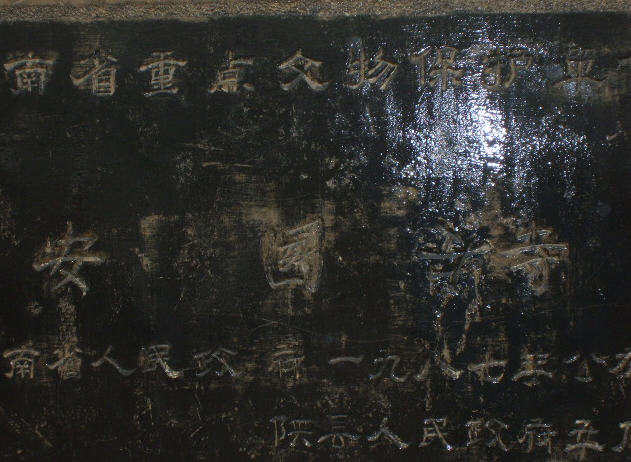 南省重点文物保护单
安国寺
南省人民政府一九八七年公布
陕县人民政府立